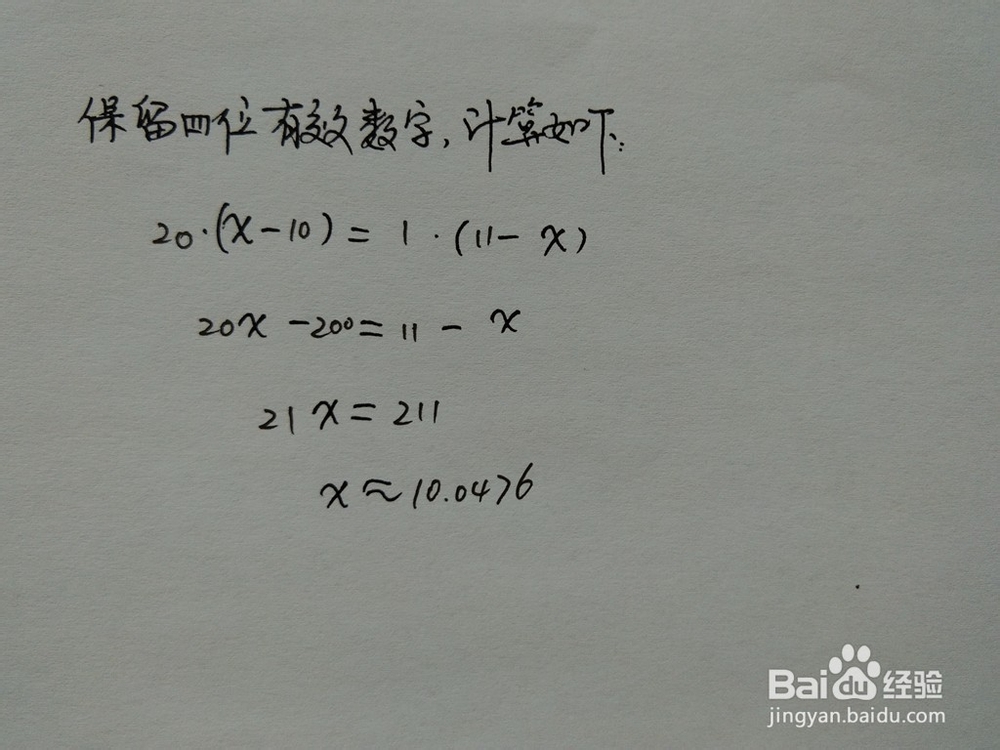 保留四位有效数字,计算如下:
20·(x-10)=1·(11-x)
20x-200=11-x
21x=211
x≈10.0476
Baidu经验
jingyan.baidu.com